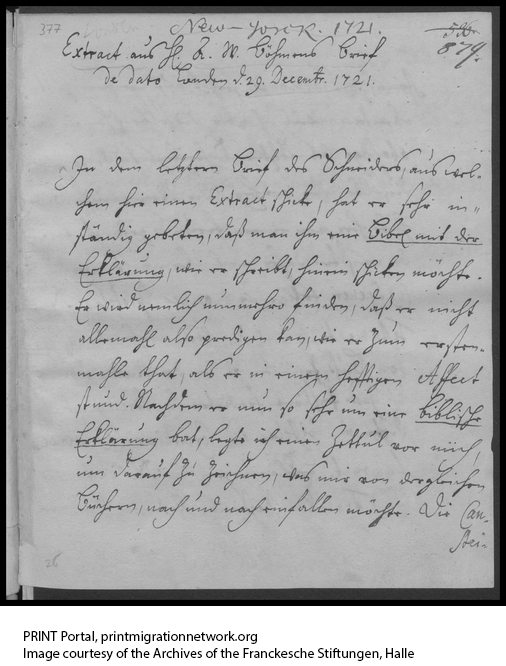 377
New-Yorck. 1721.
879.
Extract aus H. A. W. Böhmens Brief
de dato Londen d. 29. Decembr. 1721.
In dem letztern Brief des Schneiders, aus wel-
chem hier einen Extract schicke, hat er sehr in-
ständig gebeten, daß man ihm eine Bibel mit der
Erklärung, wie er schreibt, hinein schicken möchte.
Er wird nemlich nunmehro finden, daß er nicht
allemahl also predigen kan, wie er zum ersten-
mahle that, als er in einem hefftigen Affect
stund. Nachdem er nun so sehr um eine biblische
Erklärung bat, legte ich einen Zettul vor mich,
um darauf zu zeichnen, was mir von dergleichen
Büchern, nach und nach einfallen möchte. Die Can-
stei-
26
PRINT Portal, printmigrationnetwork.org
Image courtesy of the Archives of the Franckesche Stiftungen, Halle